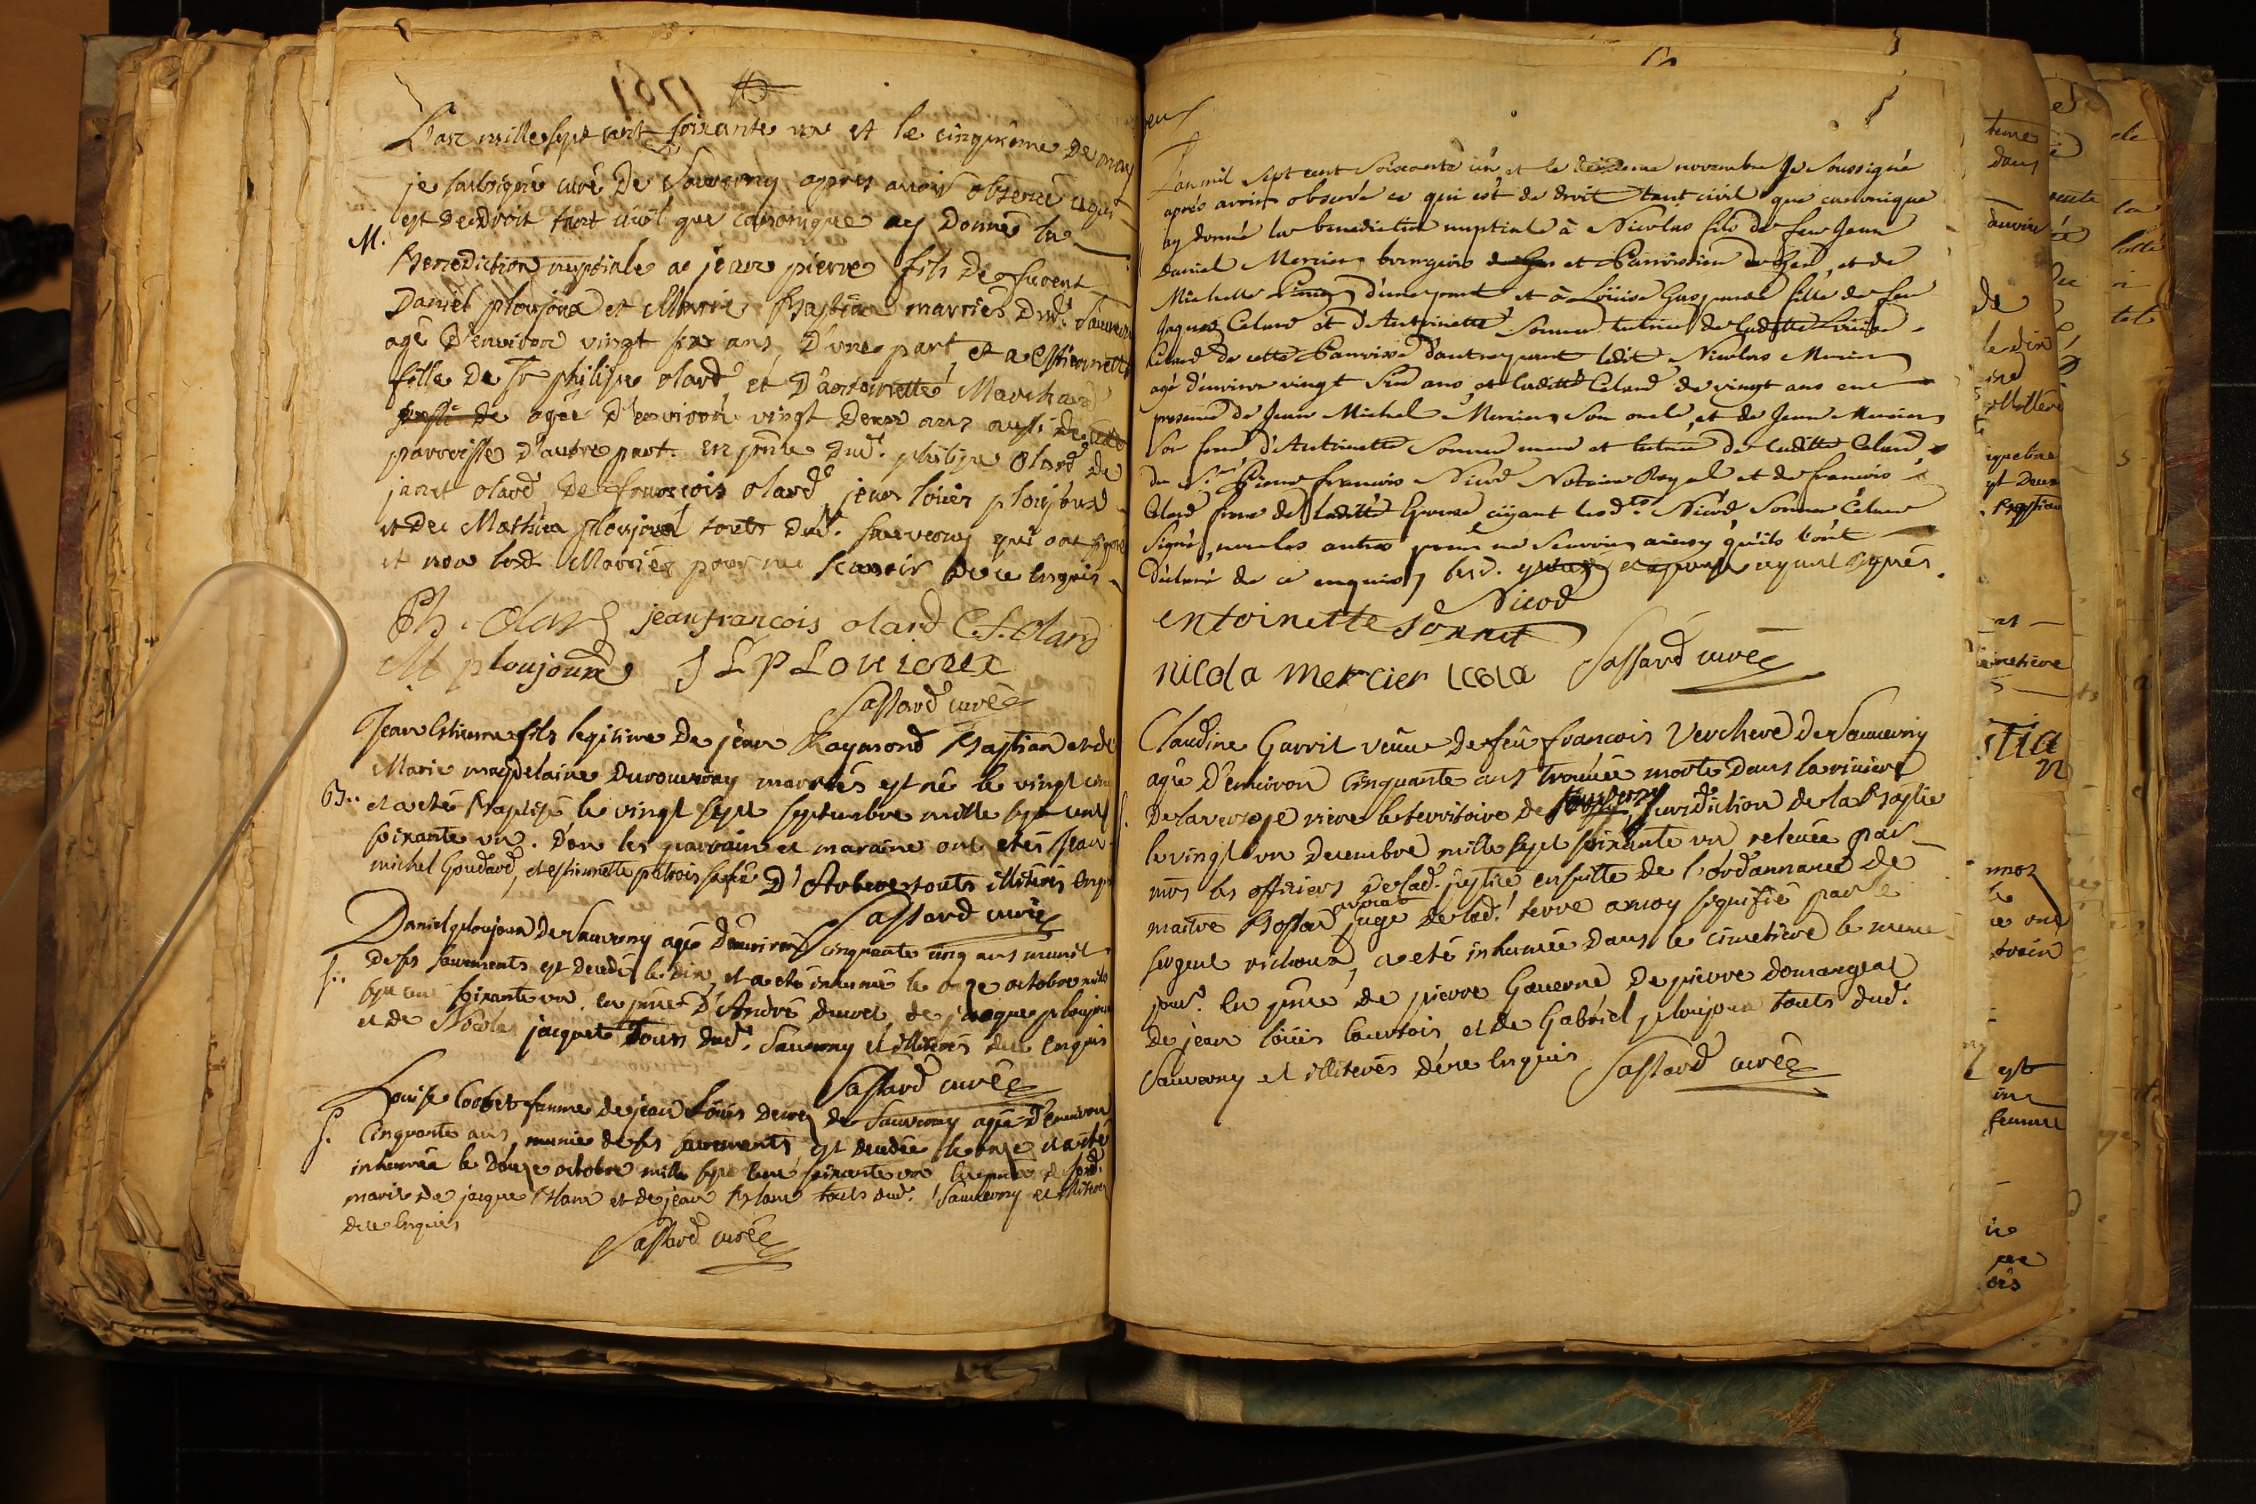 1761
L'an mille sept cent soixante un et le cinquième De may
je soussigné curé De Sauverny apprès avoir observé ce qui
est De Droit tant civil que canonique ay Donné la
M.
Benediction nuptiale a jean pierre fils De furent
Daniel ploujoux et Marie Bastian marriés Dud. Sauverny
agé D'environ vingt six ans D'une part et a Estiennette
fille De Sr philipe olard et D'antoinette Marchand
agée D'environ vingt Deux ans aussi de cette
parroisse D'autre part. en pnce Dud. philipe Olard De
janet olard De francois olard jean loüis ploujoux
et De Mathieu ploujoux touts Dud. Sauverny qui ont signé
et non lesd. Marriés pour ne scavoir De ce Enquis
Ph. Olard jeanfrancois olard C. f. olard
M ploujoux J L P Louioux
Sassard curé
Jean Estienne fils legitime De jean Raymond Bastian et de
Marie magdelaine Duvouvray marriés est né le vingt cinq
B..
et a eté Baptisé le vingt sept septembre mille sept cent
soixante un. Don les parrain et maraine ont etés jean
michel Goudard, et estiennette D'Arbere touts illiterés Enquis
Sassard curé
Daniel ploujoux De Sauverny agé D'environ cinquante cinq ans munit
S..
De ses sacrements est Decedé le dix, et a eté inhumé le onze octobre mille
sept cent soixante un en pnce D'André duvet de jacque ploujoux
et De Nicolas jacquet touts Dud. Sauverny et illiterés de ce Enquis
Sassard curé
Louise Coobet femme de jean Loüis de Sauverny agée D'environ
S.
Cinquante ans, munie de ses sacrements, est decedée le onze et a eté
inhumée le Douze octobre mille sept cent soixante un En pnce de sond.
marit de jacque et de jean touts dud. Sauverny et illiterés
De ce Enquis
Sassard curé
L'an mil sept cent soixante un, et le novembre Je soussigné
aprés avoir observé ce qui est de droit tant civil que canonique
ay donné la benediction nuptiale à Nicolas fils de feu Jean
Daniel Mercier bourgeois et Parroissien de Gex, et de
Michelle d'une part et à Loüise Gasparde fille de feu
Jaques Celard et d'Antoinette Sonnet tutrice de laditte Louise
Celard de cette Parroisse d'autre part ledit Nicolas Mercier
agé d'environ vingt ans et laditte Celard de vingt ans en
presence de Jean Michel Mercier son oncle, et de Jean Mercier
son frere d'Antoinette Sonnet mere et tutrice de laditte Celard
du Sr. Pierre francois Nicod Notaire Royal et de francois
Celard frere de laditte Epouse ayant lesdts. Nicod Sonnet Celard
signé, non les autres pour ne scavoir ainsy qu'ils l'ont
declaré de ce enquis, lesd. epoux et epouse ayant signés.
Nicod
entoinette Sonnet
nicola mercier Sassard curé
Claudine Garril veuve De feu francois Verchere De Sauverny
agée D'environ Cinquante ans trouvée morte Dans la riviere
De la versoye riere le territoire de Sauverny jurisdiction de la Bastie
le vingt un Decembre mille sept soixante un relevée par
mrs les officiers De lad. justice ensuite de l'ordannance de
maitre avocat juge De lad. terre a moy signifié par le
sergent, a eté inhumée Dans le cimetiere le meme
jour. En pnce de pierre Gauerne De pierre domangeat
De jean loüis Courtois et de Gabriel ploujoux touts dud.
Sauverny et illiterés De ce Enquis Sassard curé